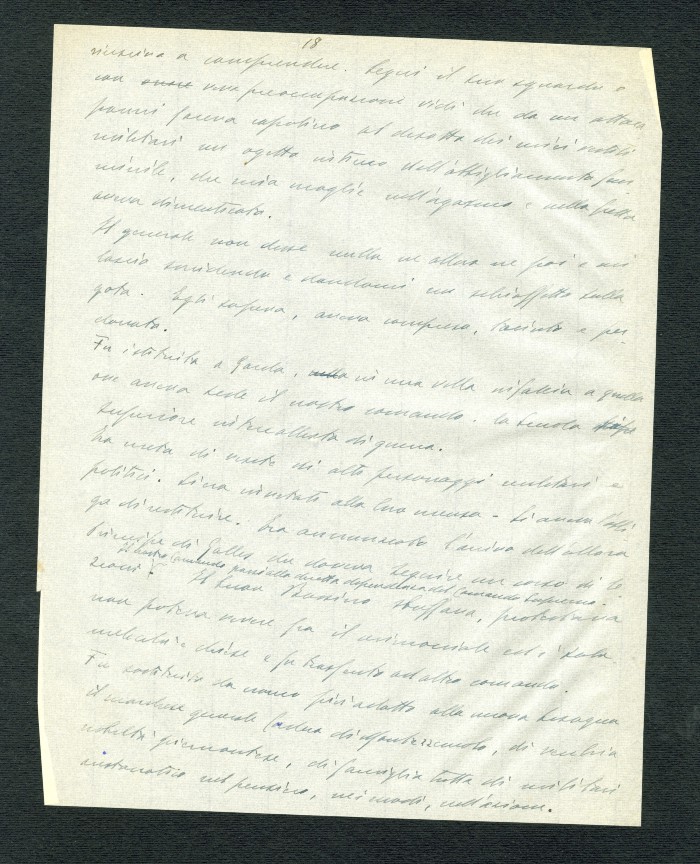 18
riusciva a comprendere. Seguii il suo sguardo e
con viva preoccupazione vidi che da un attacca
panni faceva capolino al disotto dei miei vestiti
militari un ogetto intimo dell'abbigliamento fem
minile, che mia moglie nell'agguato e nella fretta
aveva dimenticato.
Il generale non disse nulla nè allora ne poi e mi
lasciò sorridendo e dandomi un schiaffetto sulla
gota. Egli sapeva, aveva compreso, taciuto e per
donato.
Fu istituita a Garda, in una villa in faccia a quella
ove aveva sede il nostro comando, la scuola
superiore interalleata di guerra.
Era meta di visite di alti personaggi militari e
politici. Si era invitati alla loro mensa - Si aveva l'obbli
go di restituire. Era annunciato l'arrivo dell'allora
Principe di Galles che doveva seguire un corso di le
zioni. Il nostro Comando passò alla diretta dipendenza del Comando Supremo.
Il buon sbuffava, protestava
non poteva vivere fra il cerimoniale ed i
e fu trasferito ad altro comando.
Fu sostituito da uomo più adatto alla nuova bisogna
il marchese generale Cordero di Montezemolo, di vecchia
nobiltà piemontese, di famiglia tutta di militari
aristocratico nel pensiero, nei modi, nell'azione.